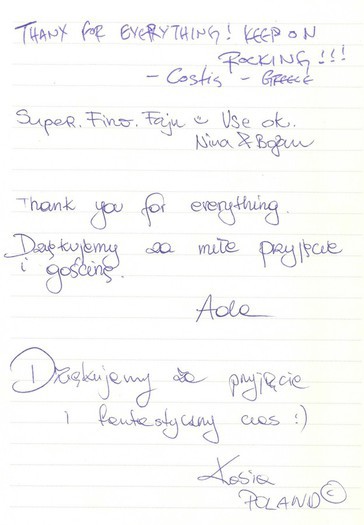 THANX FOR EVERYTHING! KEEP ON
ROCKING!!!
- Costis - GREECE
Super. Fino. Fajn :) Vse ok.
Nina & Bojan
Thank you for everything.
Dziękujemy za miłe przyjęcie
i gościnę.
Ada
Dziękujemy za przyjęcie
i fantastyczny czas :)
Kasia
POLAND ☺